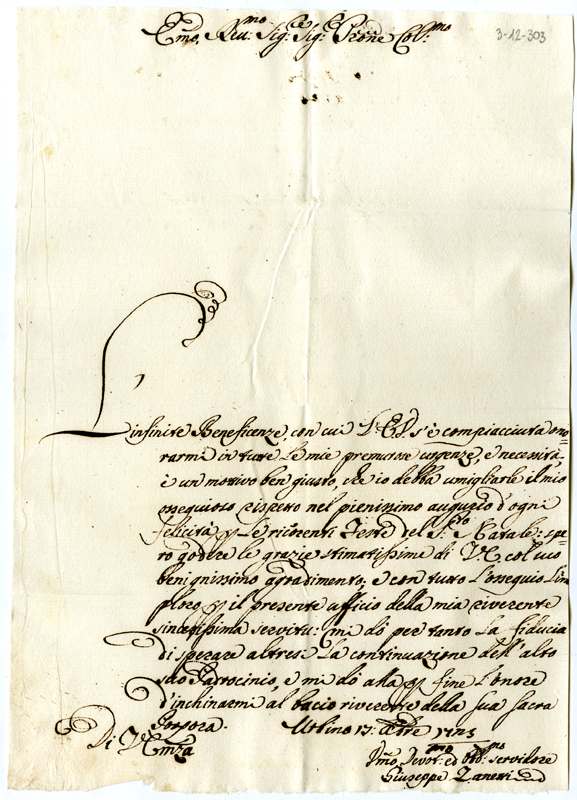 Emo. Reu:mo Sig:re Sig:re Prõne Col:mo
3-12-303
L'infinite Beneficenze, con cui V. Em s'è compiacciuta ono=
rarmi in tutte le mie premurose urgenze, e necessità,
è un motivo ben giusto, che io debba umigliarle il mio
ossequioso rispetto nel pienissimo augurio d'ogni
felicità p le ricorrenti Feste del S:to Natale: spe=
ro godere le grazie stimatissime di V.E. col suo
benignissimo agradimento, e con tutto l'ossequio l'im
ploro p il presente ufficio della mia riverente
sincerissima servitu: mi dò per tanto la fiducia
di sperare altresi la continuazione dell'alto
suo Patrocinio, e mi dò alla p fine l'onore
d'inchinarmi al bacio riverente della sua sacra
Porpora.
Di V. Emza
Urbino 17: Xbre 1723
Umo Devot:mo ed Obb:mo servidore
Giuseppe Zanetti